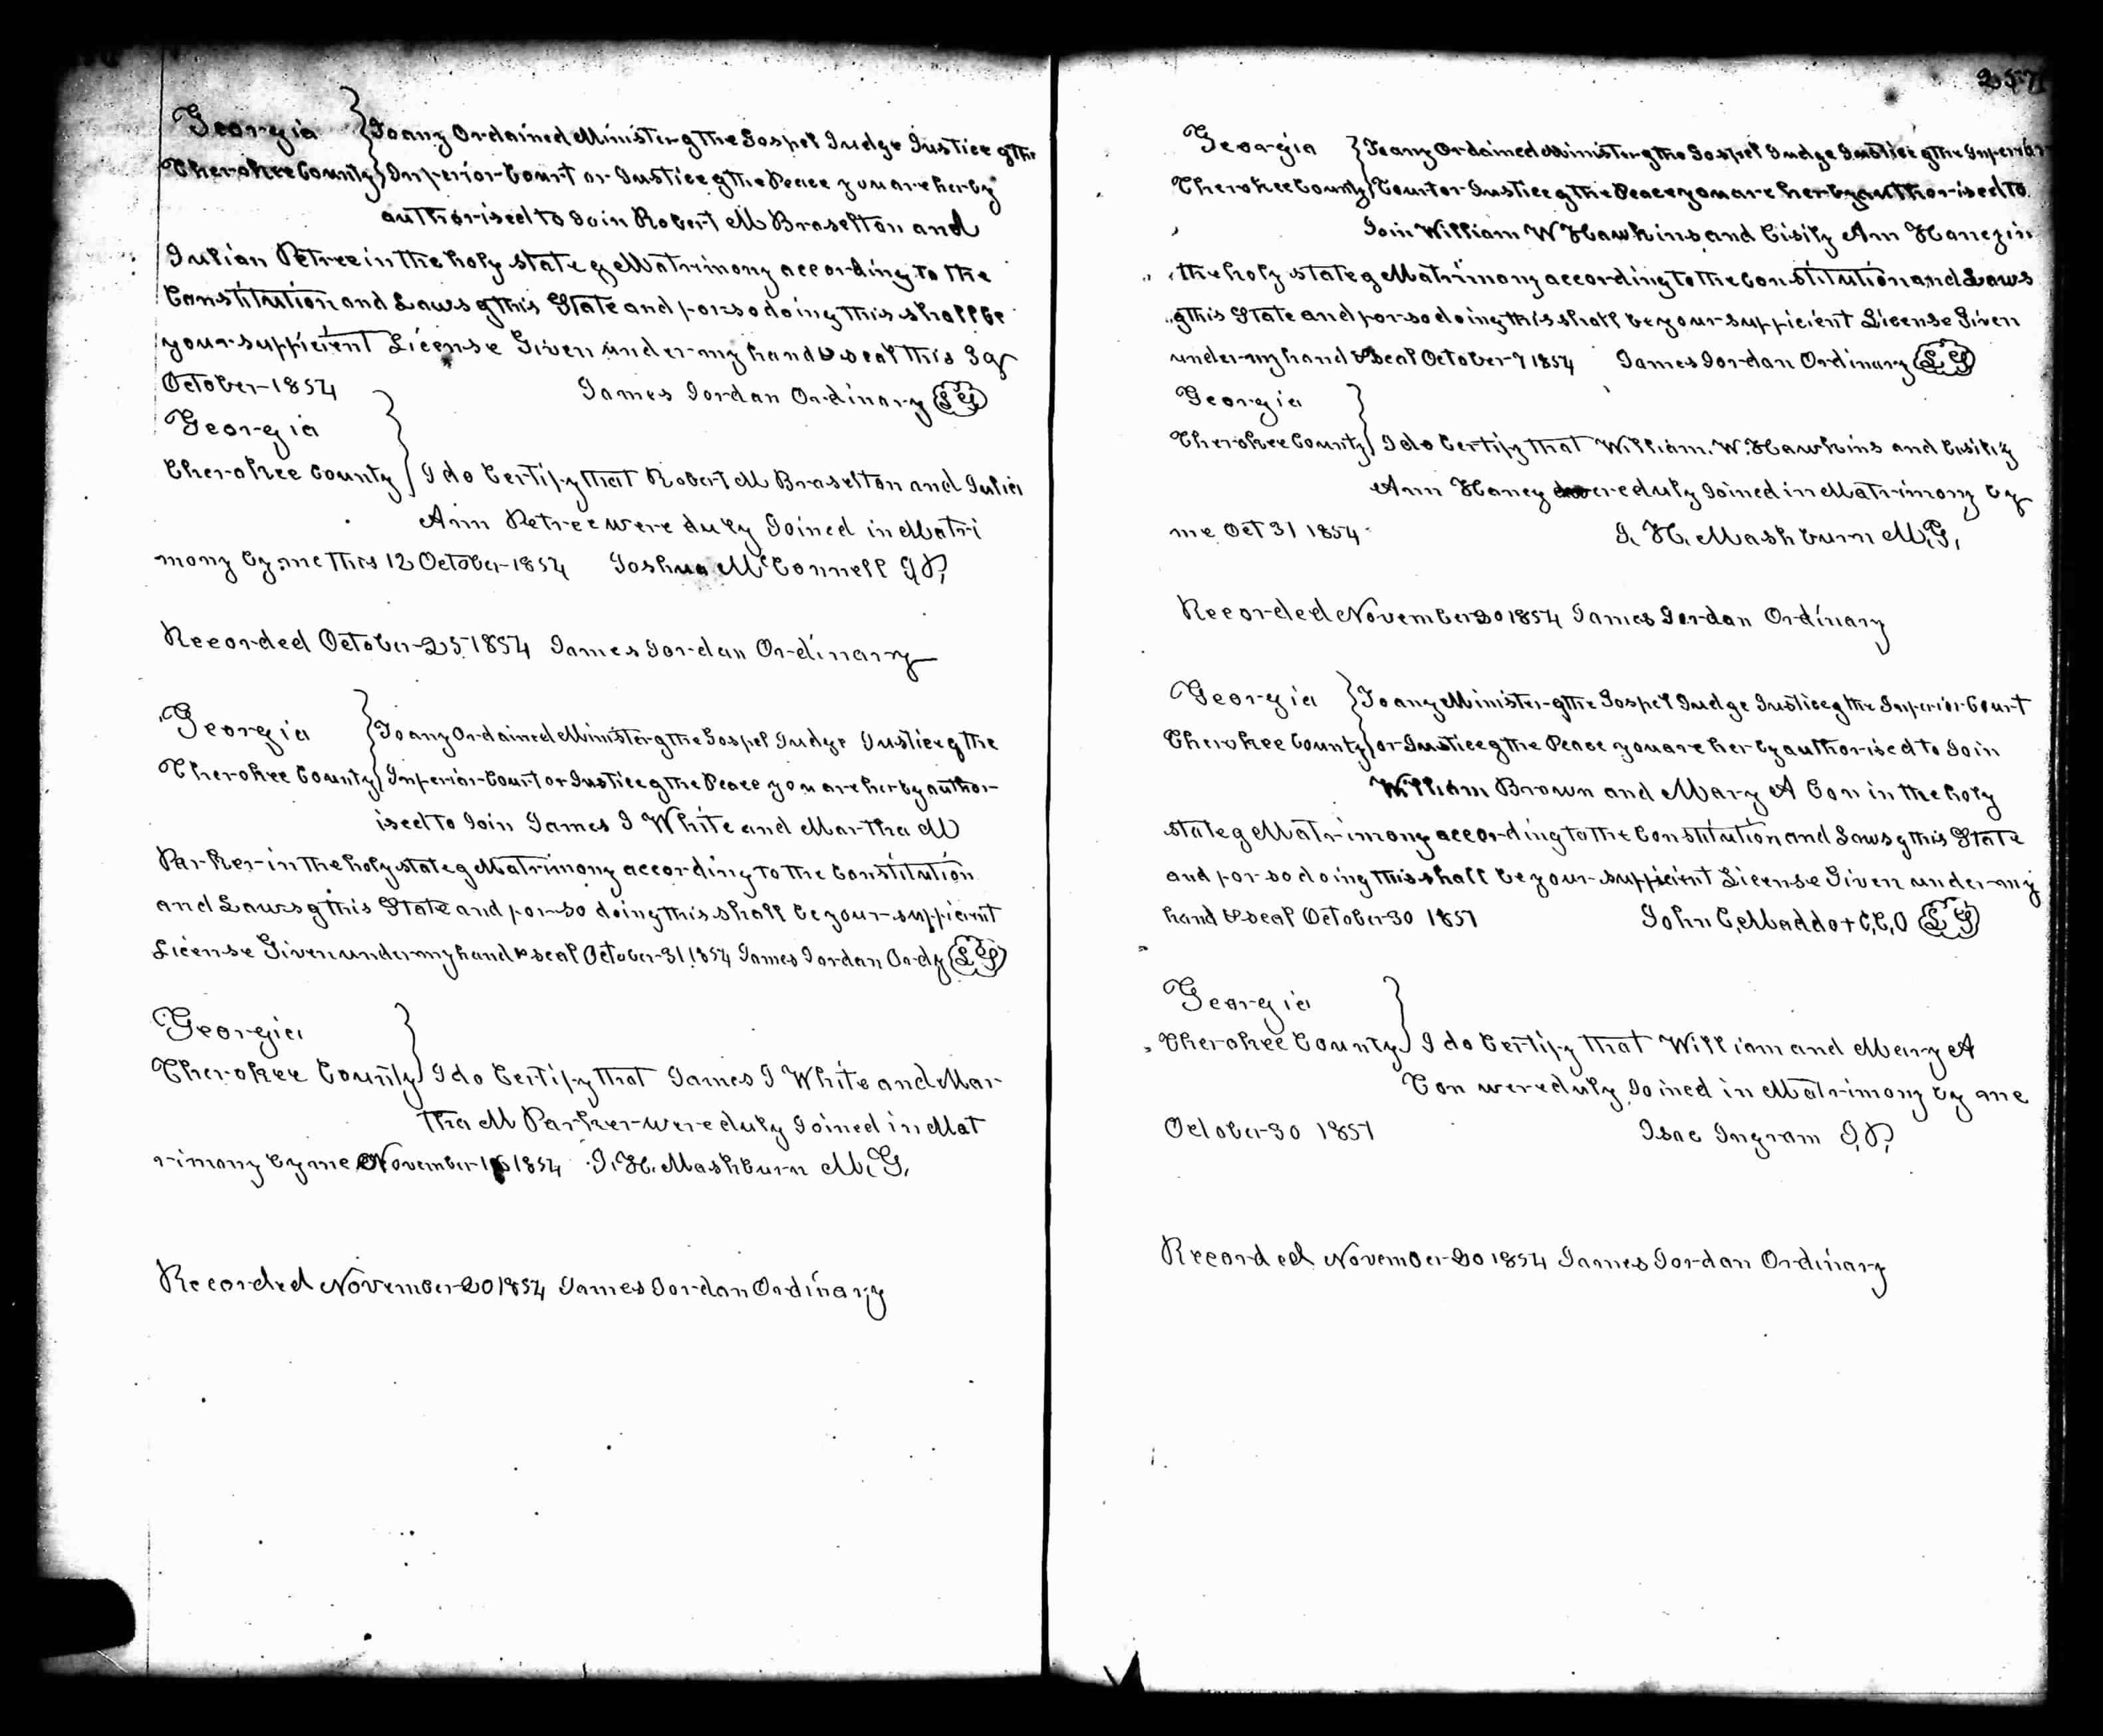 Georgia } To any Ordained Minister of the Gospel Judge Justice of the
Cherokee County } Inferior Court or Justice of the Peace you are herby
authorised to Join Robert M Braselton and
Julian Petree in the holy state of Matrimony according to the
Constitution and Laws of this State and for so doing this shall be
your sufficient License Given under my hand & seal this 3 of
October 1854 James Jordan Ordinary L S
Georgia }
Cherokee County } I do Certify that Robert M Braselton and Julia
Ann Petree were duly Joined in Matri
mony by me this 12 October 1854 Joshua McConnell J.P,
Recorded October 25 1854 James Jordan Ordinary
Georgia } To any Ordained Minister of the Gospel Judge Justice of the
Cherokee County } Inferior Court or Justice of the Peace you are herby author-
ised to Join James J White and Martha M
Parker in the holy state of Matrimony according to the Constitution
and Laws of this State and for so doing this shall be your sufficient
License Given under my hand & seal October 31 1854 James Jordan Ordy L S
Georgia }
Cherokee County } I do Certify that James J White and Mar-
tha M Parker were duly Joined in Mat
rimony by me November 1854 J. H. Mashburn M. G.
Recorded November 20 1854 James Jordan Ordinary
257
Georgia } To any Ordained Minister of the Gospel Judge Justice of the Inferior
Cherokee County } Court or Justice of the Peace you are herby authorised to
Join William W Hawkins and Cisily Ann Haney in
the holy state of Matrimony according to the Constitution and Laws
of this State and for so doing this shall be your sufficient License Given
under my hand & seal October 7 1854 James Jordan Ordinary L S
Georgia }
Cherokee County } I do Certify that William. W. Hawkins and Cisily
Ann Haney were duly Joined in Matrimony by
me Oct 31 1854 J. H. Mashburn M. G,
Recorded November 20 1854 James Jordan Ordinary
Georgia } To any Minister of the Gospel Judge Justice of the Inferior Court
Cherokee County } or Justice of the Peace you are herby authorised to Join
William Brown and Mary A Con in the holy
state of Matrimony according to the Constitution and Laws of this State
and for so doing this shall be your sufficient License Given under my
hand & seal October 30 1851 John C, Maddox C, C, O L S
Georgia }
Cherokee County } I do Certify that William and Mary A
Con were duly Joined in Matrimony by me
October 30 1851 Isac Ingram J, P,
Recorded November 20 1854 James Jordan Ordinary